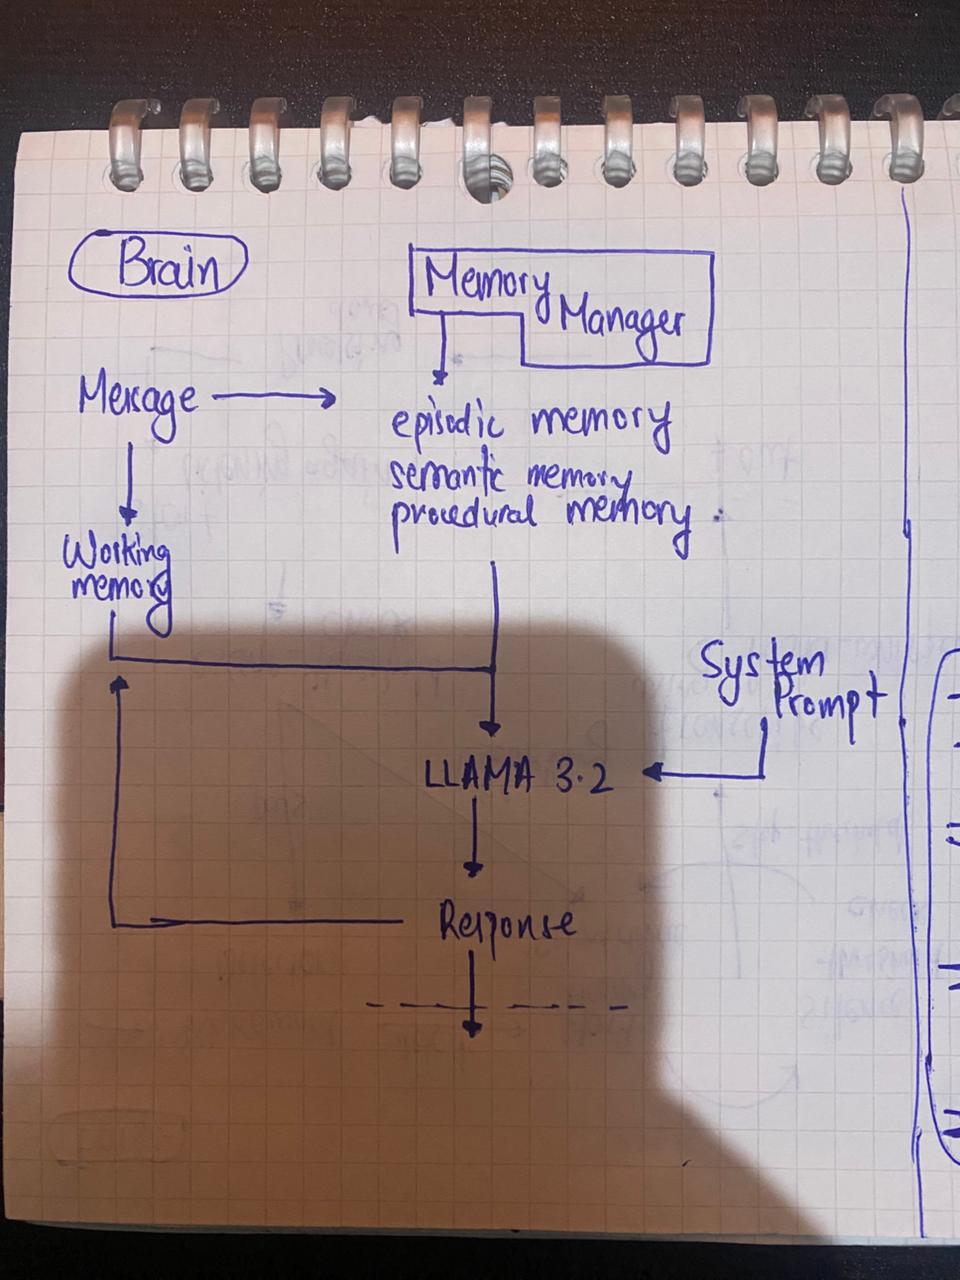 Brain
Memory
Manager
Message
episodic memory
semantic memory
procedural memory
Working
memory
System
Prompt
LLAMA 3.2
Response